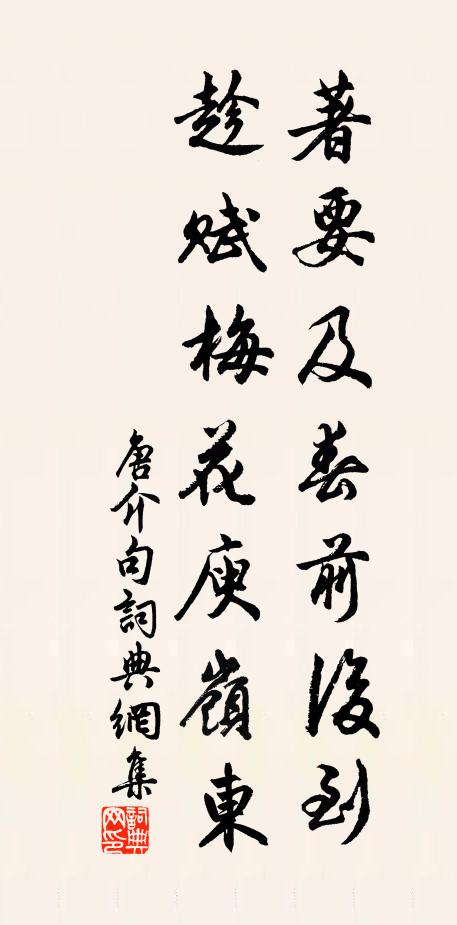 著要及春前後到
趁賦梅花庾嶺東
唐介句詞典網集
詞典網印